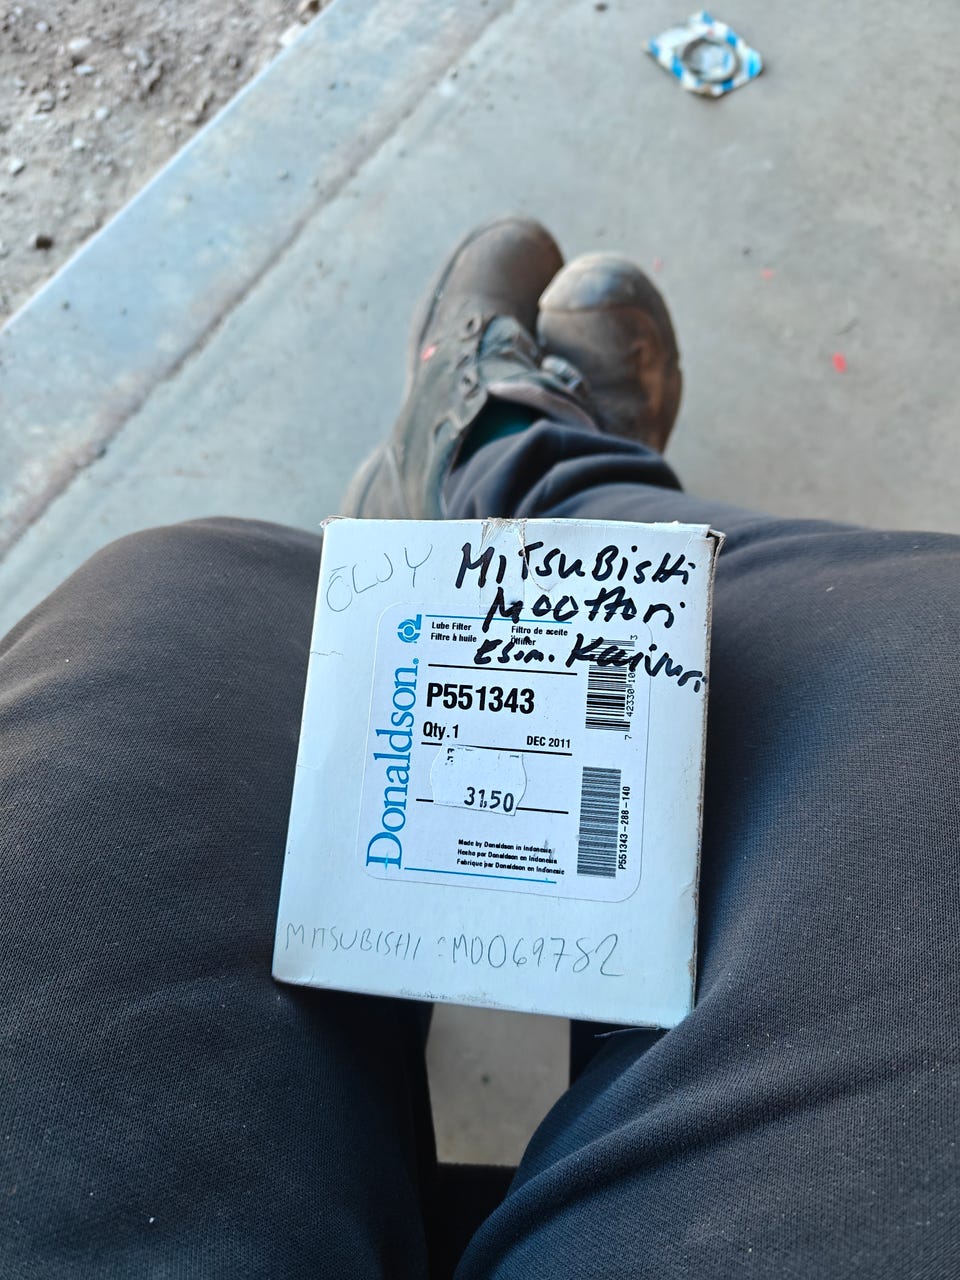 ÖLJY
MITSUBISHI
MOOTTORI
Esim. Kaivuri
Lube Filter
Filtro de aceite
Filtre à huile
Ölfilter
Donaldson.
P551343
Qty. 1
DEC 2011
31,50
Made by Donaldson in Indonesia
Hecho por Donaldson en Indonesia
Fabrique par Donaldson en Indonesie
P551343-288-140
MITSUBISHI : MD069782